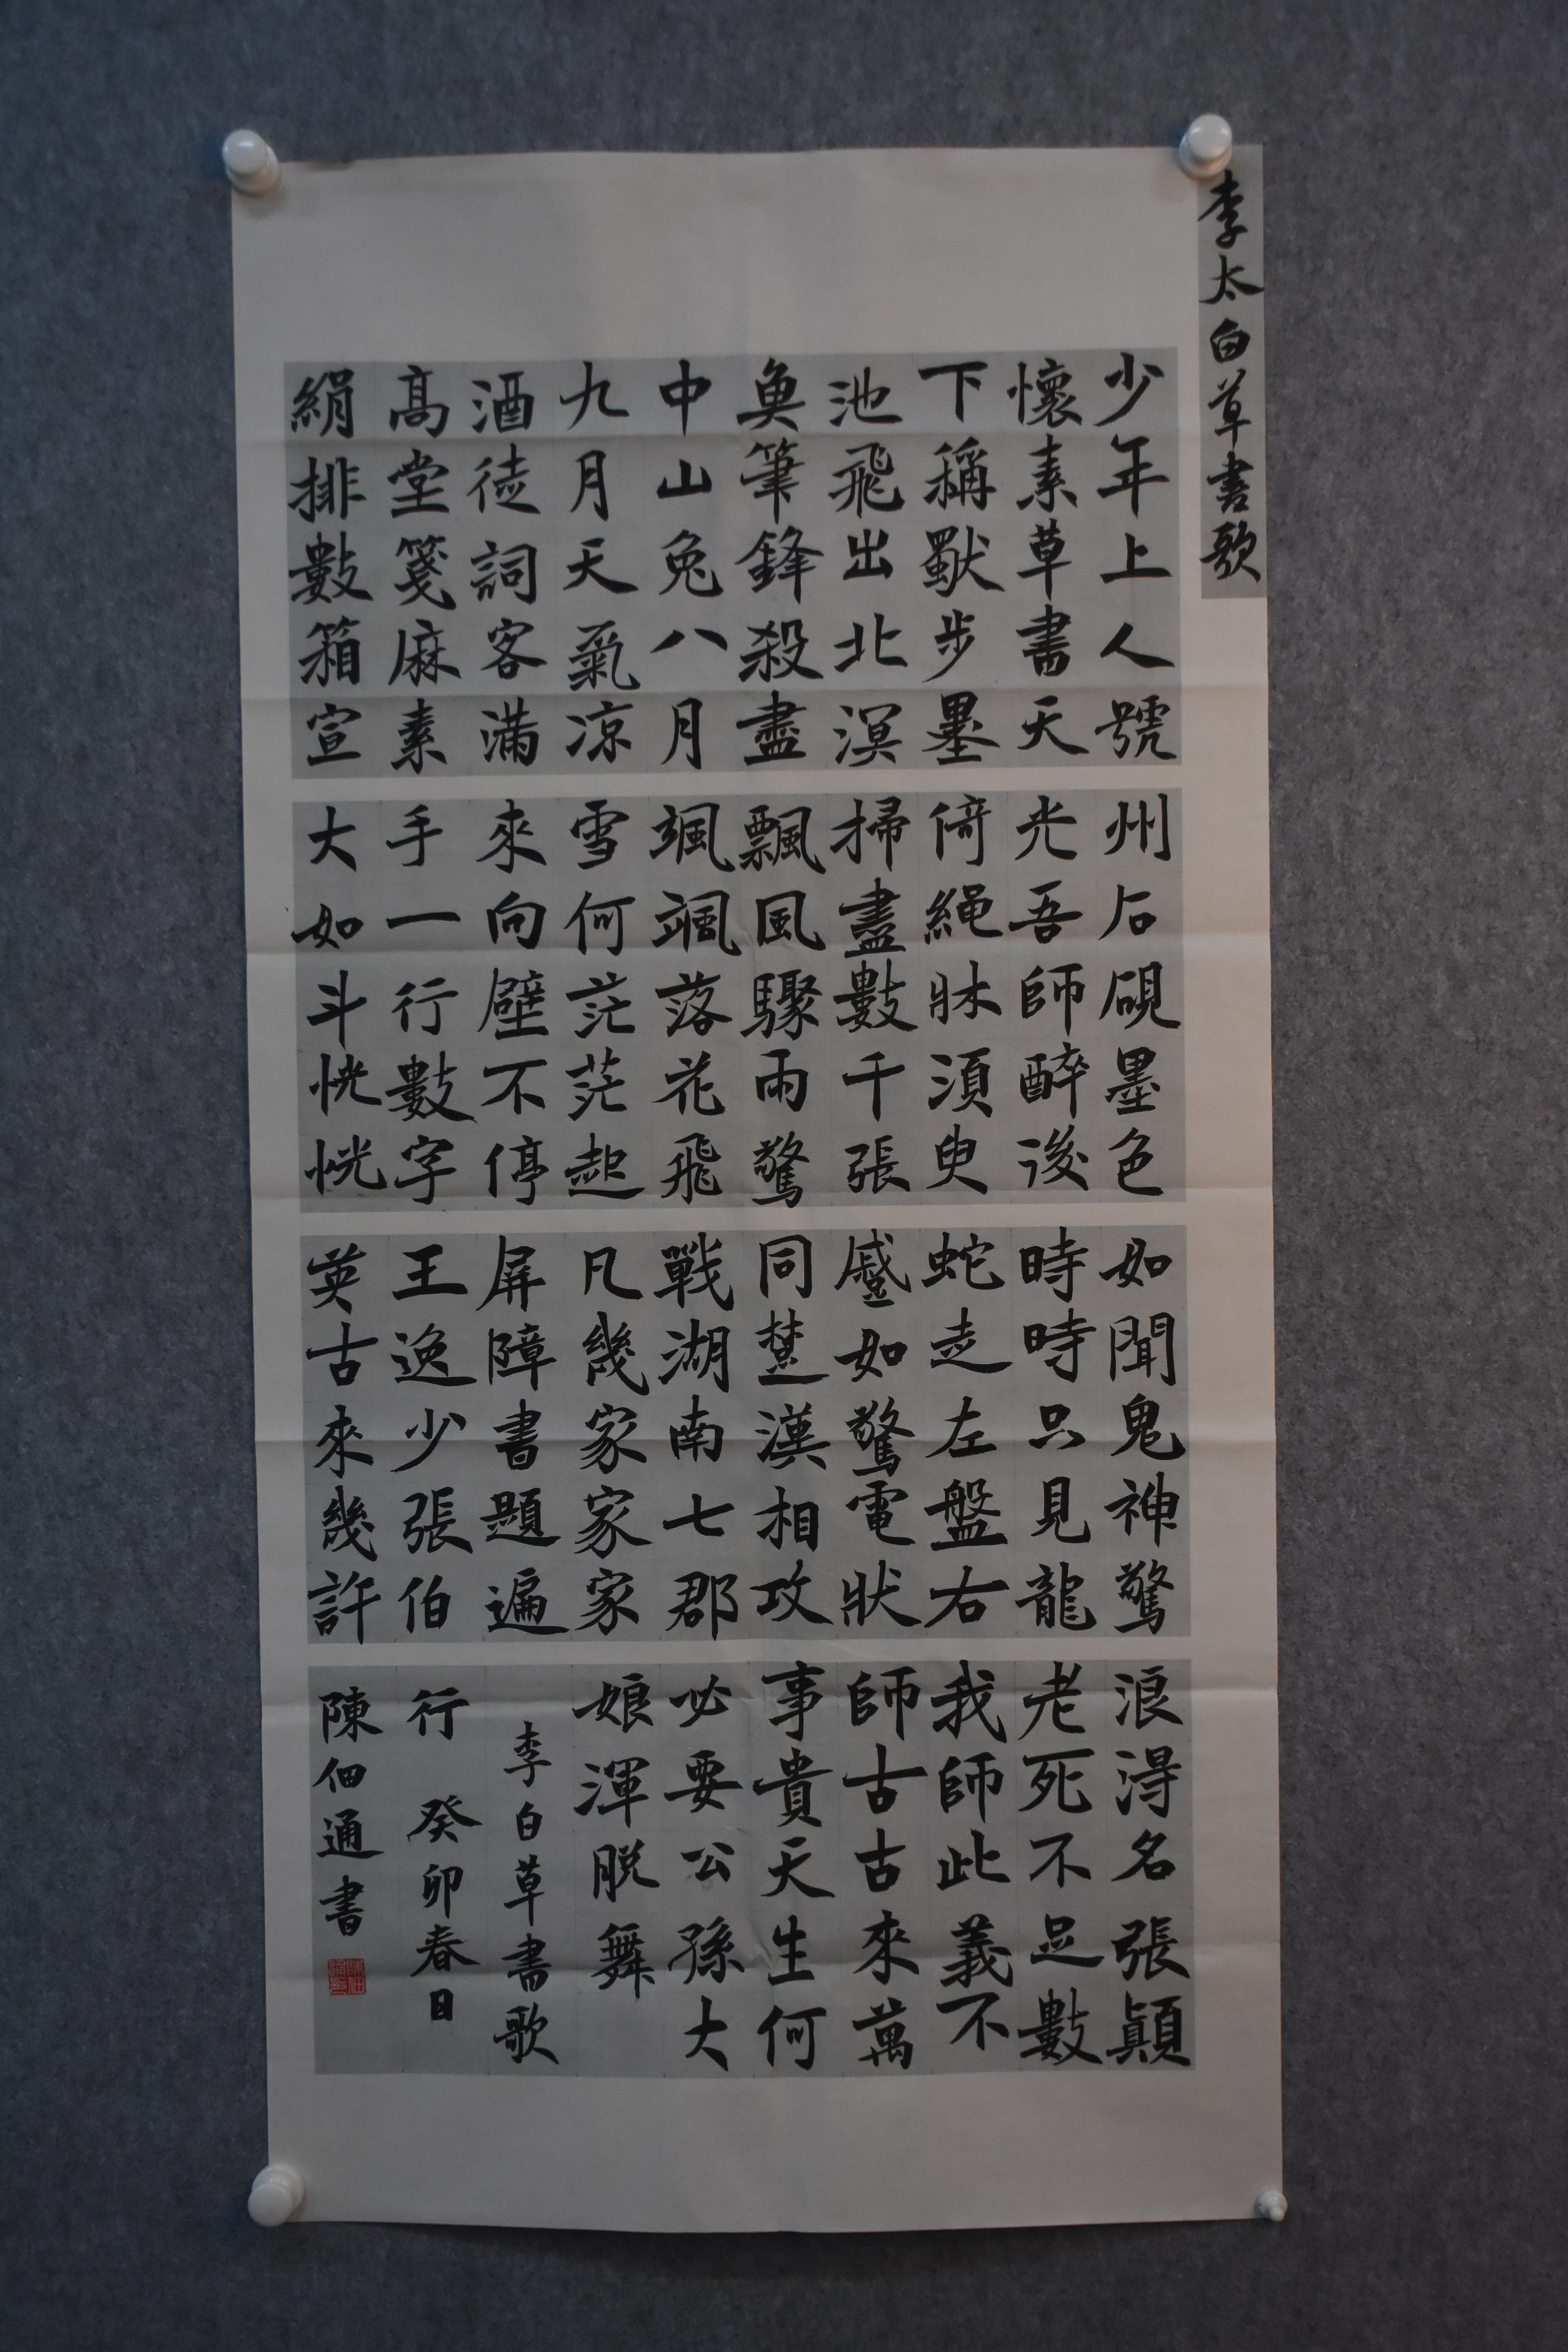 李太白草書歌
少年上人號
懷素草書天
下稱獸步墨
池飛出北溟
魚筆鋒殺盡
中山兔八月
九月天氣涼
酒徒詞客滿
高堂箋麻素
絹排數箱宣
州石硯墨色
光吾師醉後
倚繩牀須臾
掃盡數千張
飄風驟雨驚
颯颯落花飛
雪何茫茫起
來向壁不停
手一行數字
大如斗恍恍
如聞鬼神驚
時時只見龍
蛇走左盤右
蹙如驚電狀
同楚漢相攻
戰湖南七郡
凡幾家家家
屏障書題遍
王逸少張伯
英古來幾許
浪得名張顛
老死不足數
我師此義不
師古古來萬
事貴天生何
必要公孫大
娘渾脫舞
李白草書歌
行 癸卯春日
陳佃通書